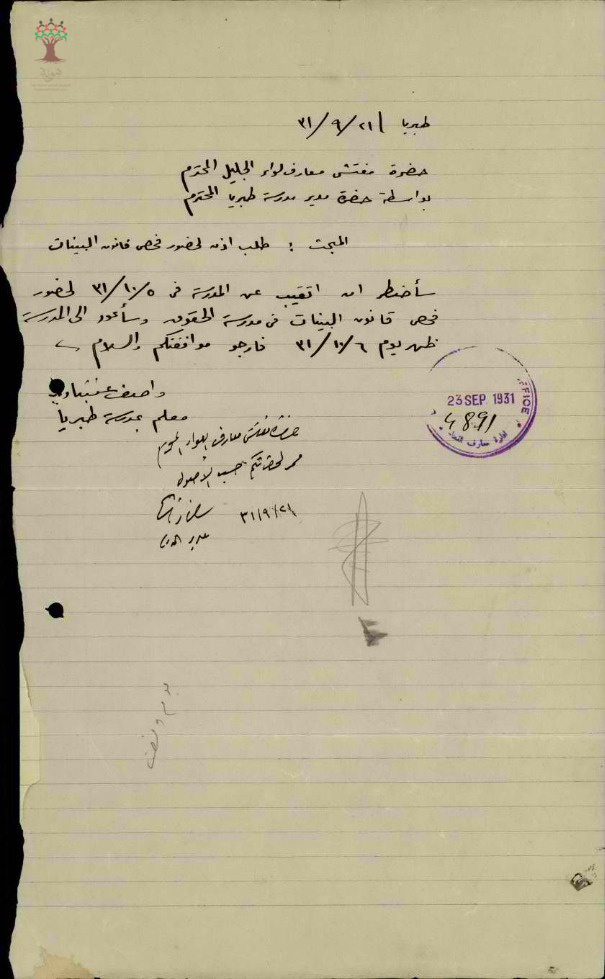 طبريا ٢١/٩/٣١
حضرة مفتش معارف لواء الجليل المحترم
بواسطة حضرة مدير مدرسة طبريا المحترم
المبحث : طلب اذن لحضور فحص قانون البينات
سأضطر ان اتغيب عن المدرسة في ٥/١٠/٣١ لحضور
فحص قانون البينات في مدرسة الحقوق وسأعود الى المدرسة
ظهر يوم ٦/١٠/٣١ فارجو موافقتكم والسلام
واصف عنبتاوي
معلم بمدرسة طبريا
حضرة مفتش معارف اللواء المحترم
حسب الأصول
٢١/٩/٣١
OFFICE
23 SEP 1931
4891
ادارة معارف